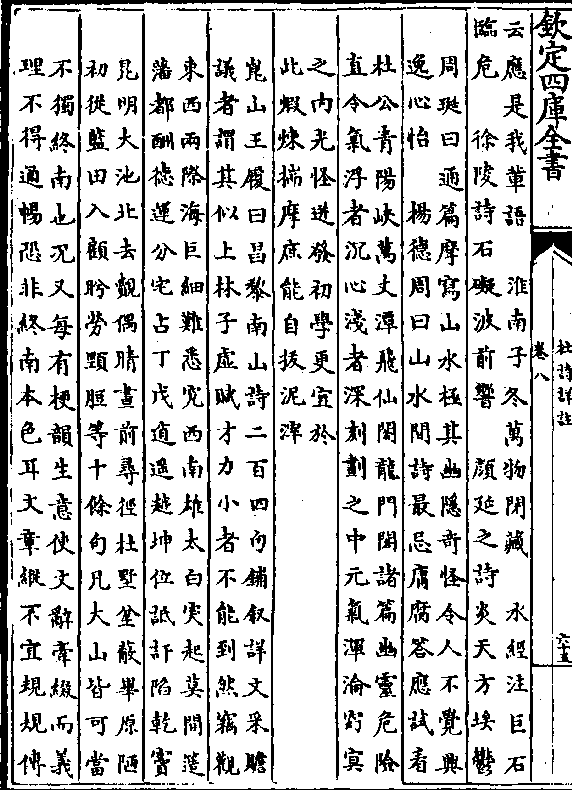 欽定四庫全書
杜詩詳註
卷八
六十五
云應是我輩語　淮南子冬萬物閉藏　水經注巨石
臨危　徐陵詩石礙波前響　顔延之詩炎天方埃鬱
周珽曰通篇摩寫山水極其幽隱奇怪令人不覺興
逸心怡　楊德周曰山水間詩最忌庸腐答應試看
杜公青陽峽萬丈潭飛仙閣龍門閣諸篇幽靈危險
直令氣浮者沉心淺者深刻劃之中元氣渾淪窈冥
之内光怪迸發初學更宜於
此煅煉揣摩庶能自拔泥滓
崑山王履曰昌黎南山詩二百四句鋪叙詳文采贍
議者謂其似上林子虛賦才力小者不能到然竊觀
東西兩際海巨細難悉究西南雄太白突起莫間簉
藩都酬德運分宅占丁戊逍遥越坤位詆訐陷乾竇
昆明大池北去覿偶晴晝前尋徑杜墅坌蔽畢原陋
初從藍田入顧眄勞頸脰等十餘句凡大山皆可當
不獨終南也况又每有梗韻生意使文辭牽綴而義
理不得通暢恐非終南本色耳文章縱不宜規規傅